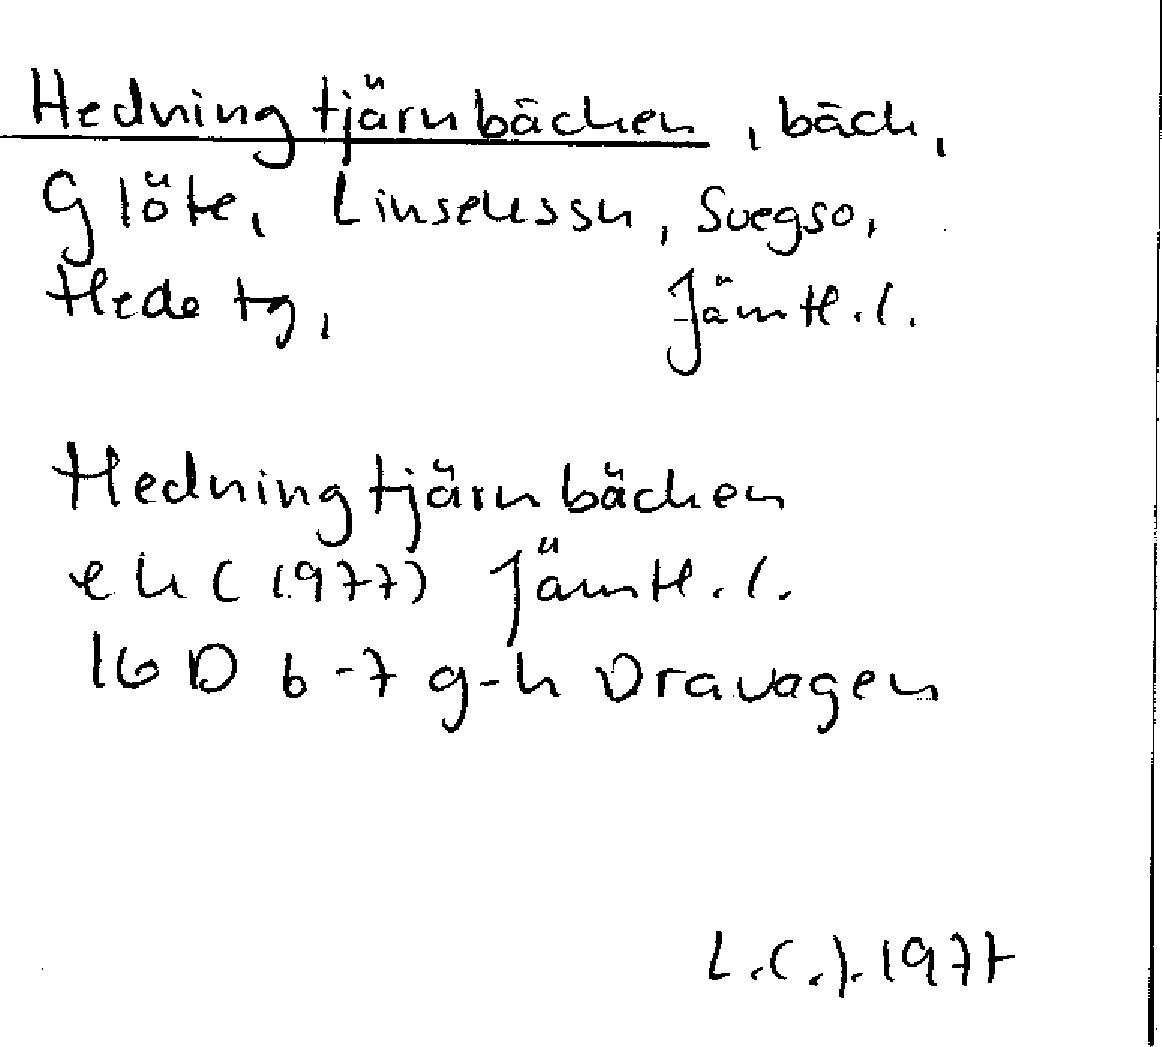 Hedningtjärnbäcken, bäck,
Glöte, Linsellssn, Svegso,
Hede tg, Jämtl. l.
Hedningtjärnbäcken
ek (1977) Jämtl. l.
16 D 6-7 g-h Dravagen
L.C.J. 1977